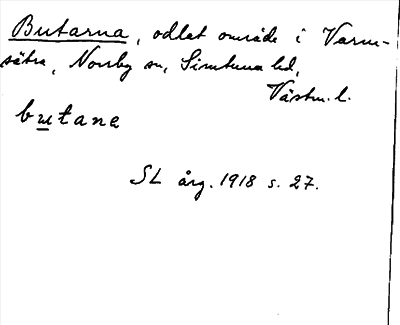 Butarna, odlat område i Varm-
sätra, Norrby sn, Simtuna hd,
Västm. l.
butane
SL årg. 1918 s. 27.